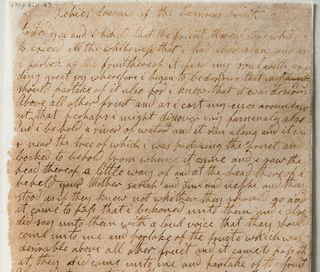 1 Nep 8:11-27
Lehies Dream of the Precious Fruit
tasted it and i beheld that the fruit thereof was white
to exceed all the whiteness that i had ever seen and as
i partook of the fruit thereof it filld my soul with exce
ding great joy wherefore i began to be desirous that my family
should partake of it also for i knew that it was desirous
above all other fruit and as i cast my eyes around abou
ut that perhaps i might discover my family also
and i beheld a river of water and it ran along and it wa
s near the tree of which i was partaking the fruit and i
looked to behold from whence it came and i saw the
head thereof a little way off and at the head there of i
beheld your Mother sariah and sam and nephi and they
stood as if they knew not whither they should go and
it came to pass that i beckoned unto them and i also
did say unto them with a loud voice that they should
come unto me and partake of the fruite which was
desirable above all other fruit and it came to pass th
at they did come unto me and partake of the fruit